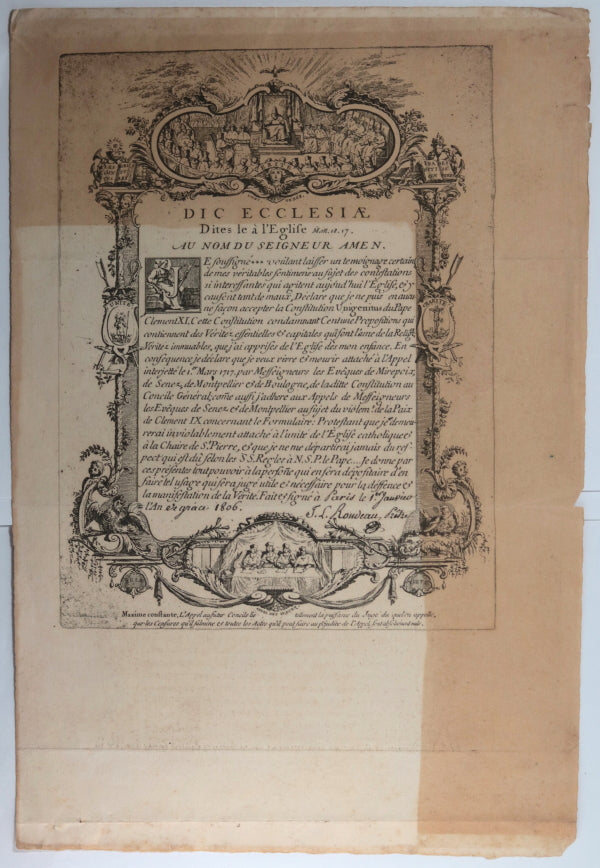 DIC ECCLESIÆ
Dites le à l'Eglise Mat. 18. 17.
AU NOM DU SEIGNEUR AMEN.
JE soussigné voulant laisser un temoignage certain
de mes veritables sentimens au sujet des contestations
si interessantes qui agitent aujoud'hui l'Eglise, & y
causent tant de maux, Declare que je ne puis en aucu
ne façon accepter la Constitution Unigenitus du Pape
Clement XI, Cette Constitution condamnant Cent une Propositions qui
contiennent des Véritez essentielles & capitales qui sont l'ame de la Relig.
Véritez immuables, que j'ai apprises de l'Eglise dès mon enfance. En
conséquence je déclare que je veux vivre & mourir attaché à l'Appel
interjetté le 1er Mars 1717. par Messeigneurs les Evêques de Mirepoix,
de Senez, de Montpellier & de Boulogne, de la ditte Constitution au
Concile Général; come aussi j'adhere aux Appels de Messeigneurs
les Evêques de Senez & de Montpellier au sujet du violemt. de la Paix
de Clement IX concernant le Formulaire: Protestant que je demeu
rerai inviolablement attaché à l'unité de l'Eglise catholique &
à la Chaire de St. Pierre, & que je ne me départirai jamais du res
pect qui est dû selon les S.S. Regles à N.S.P. le Pape... Je donne par
ces présentes tout pouvoir à la persone qui en sera dépositaire d'en
faire tel usage qui sera jugé utile & nécessaire pour la deffence &
la manifestation de la Vérité. Fait & signé à Paris le 1er Janvier
l'An de grace 1806.
J. L. Rondeau,
Maxime constante, L'Appel au futur Concile lie tellement la puissance du Juge du quel on appelle,
que les Censures qu'il fulmine & toutes les Actes qu'il peut faire au préjudice de l'Appel, sont absolument nuls.